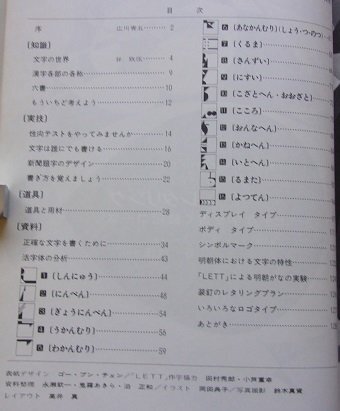 目 次
序 ……… 2
[知識]
文字の世界 ……… 4
漢字各部の名称 ……… 9
六書 ……… 10
もういちど考えよう ……… 12
[実技]
性向テストをやってみませんか ……… 14
文字は誰にでも書ける ……… 16
新聞題字のデザイン ……… 20
書き方を覚えましょう ……… 22
[道具]
道具と用材 ……… 28
[資料]
正確な文字を書くために ……… 34
活字体の分析 ……… 43
1 (しんにゅう) ……… 44
2 (にんべん) ……… 49
3 (ぎょうにんべん) ……… 54
4 (うかんむり) ……… 56
5 (わかんむり) ……… 59
6 (あなかんむり)(しょう・つ・のつ)
7 (くるま)
8 (さんずい)
9 (にすい)
10 (こざとへん・おおざと)
11 (こころ)
12 (おんなへん)
13 (かねへん)
14 (いとへん)
15 (るまた)
16 (よつてん)
ディスプレイ タイプ
ボディ タイプ
シンボルマーク
明朝体における文字の特性
「LETT」による明朝がなの実験
装釘のレタリングプラン
いろいろなロゴタイプ
あとがき
表紙デザイン ゴー・ブン・チェン/「LETT」作字協力 田村秀郎・小芦重幸
レイアウト 高井 真